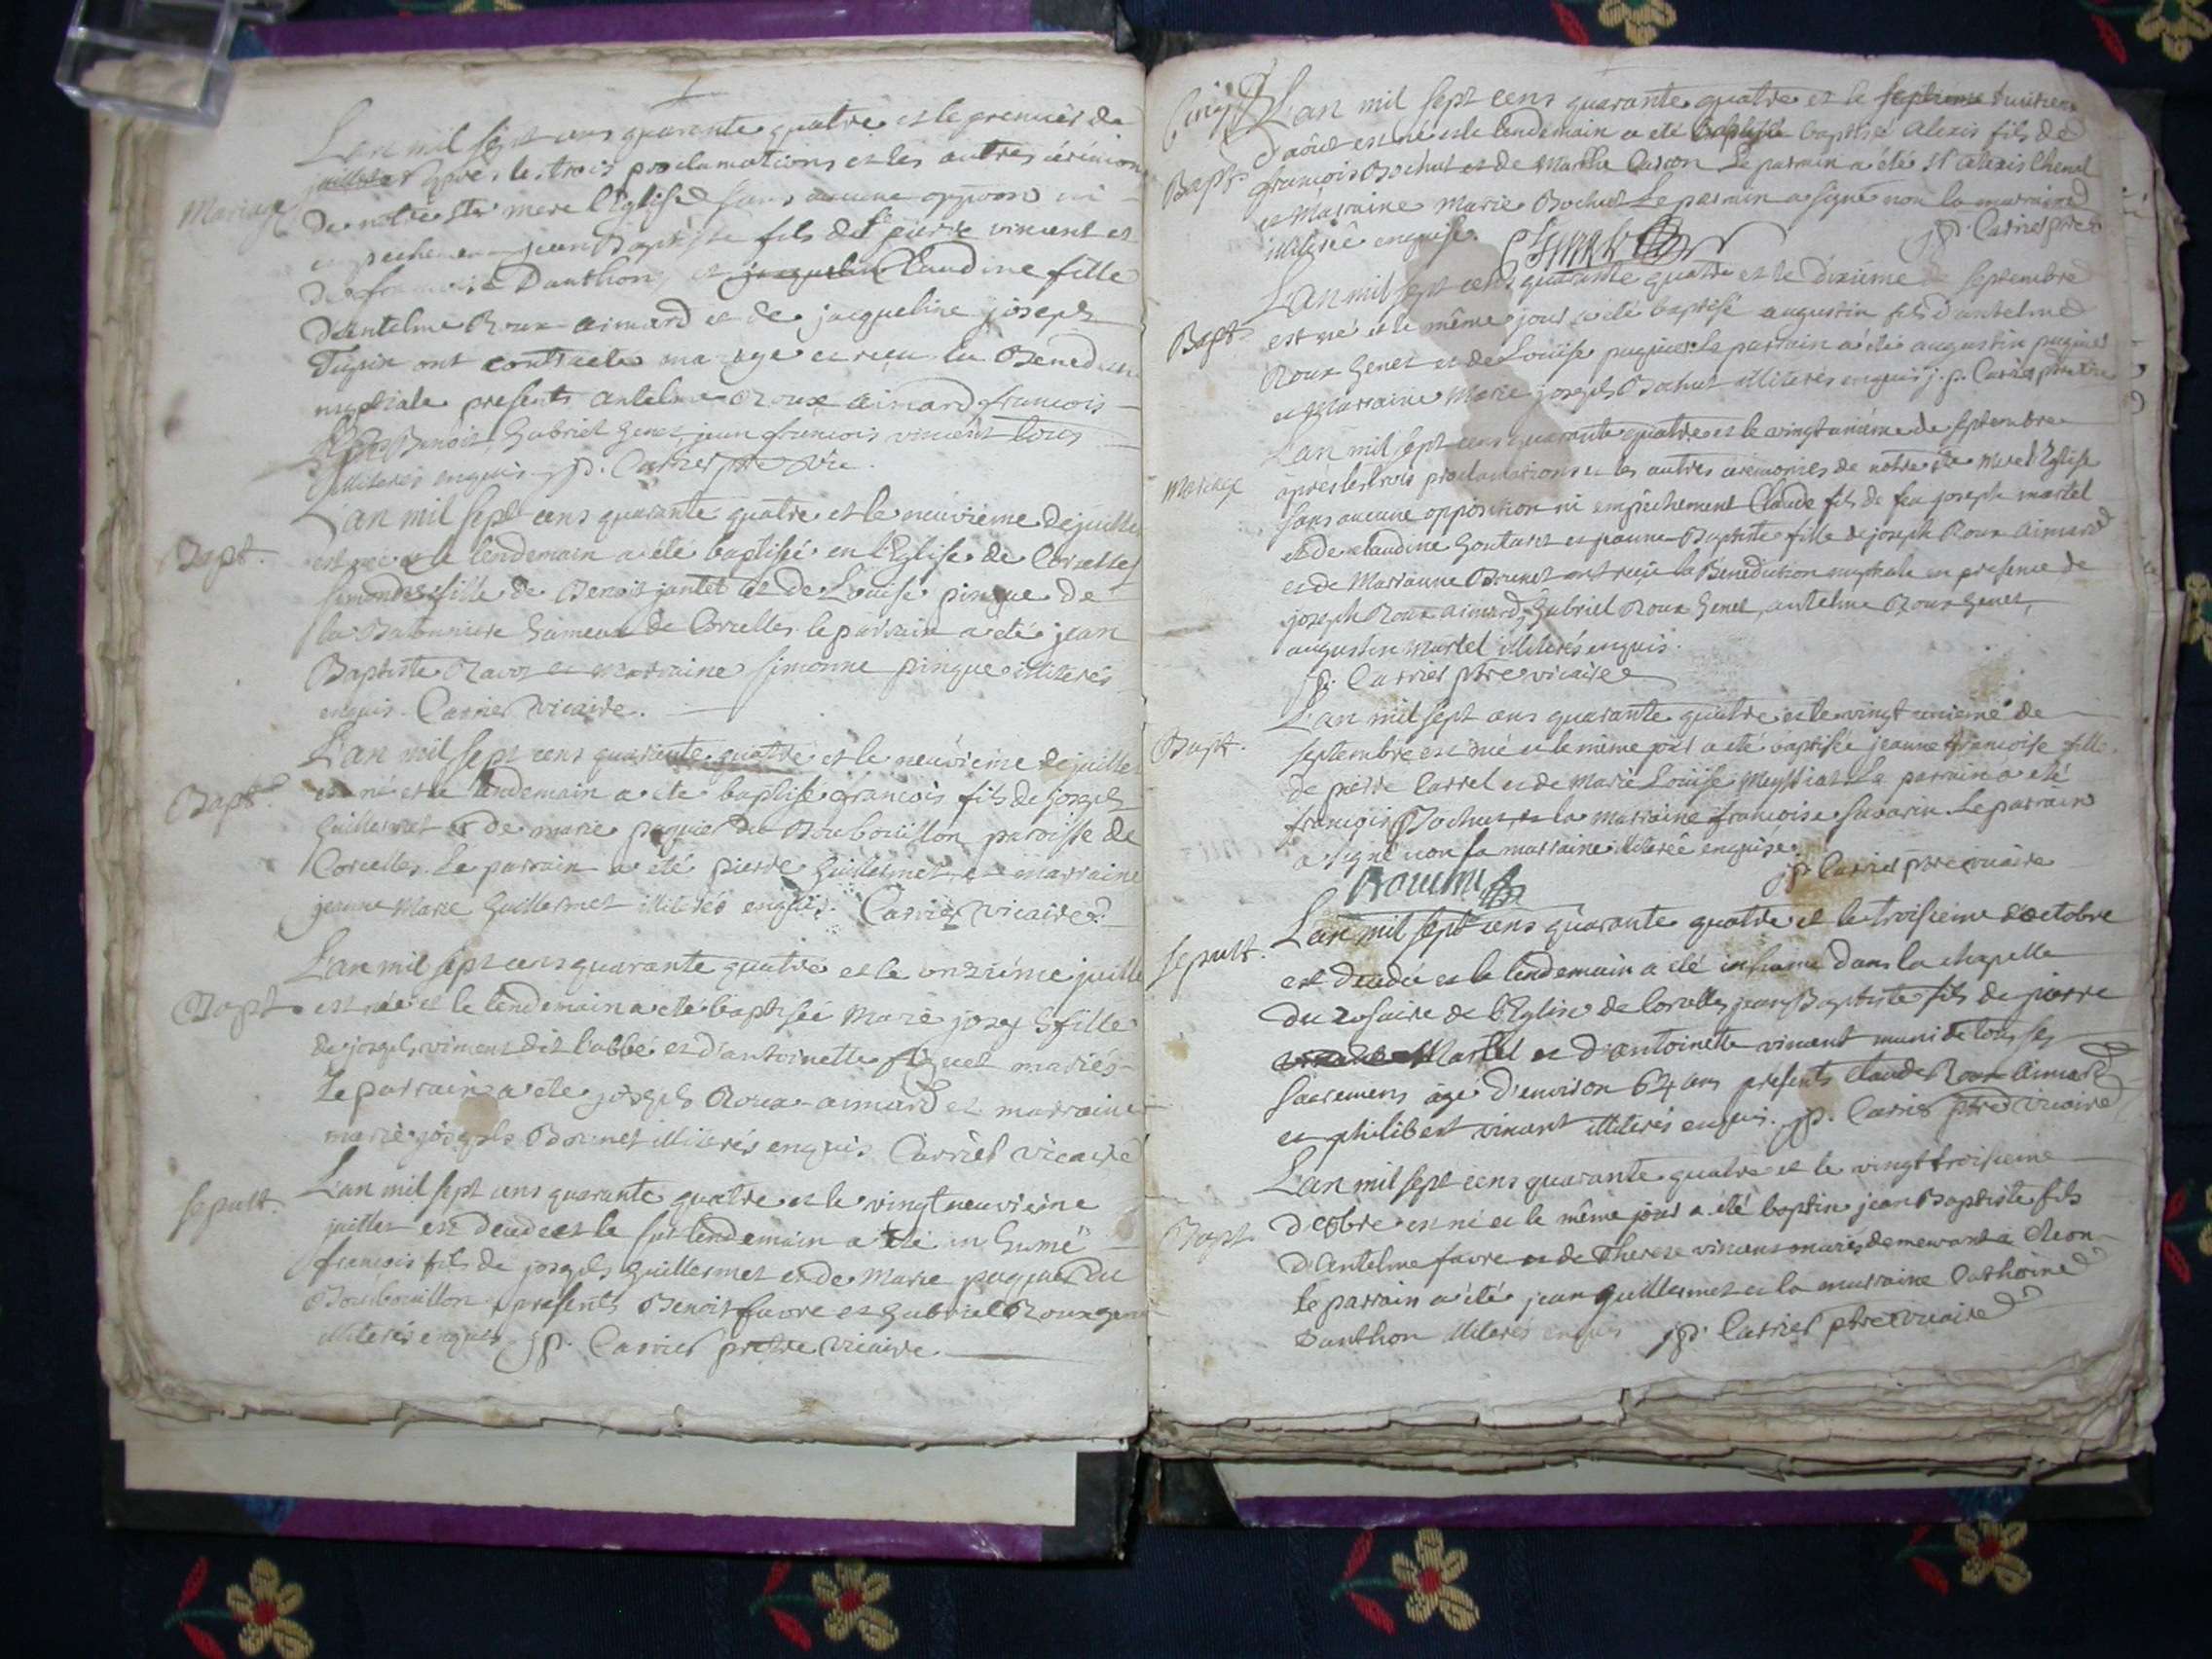 Mariage
L'an mil sept cens quarante quatre et le premier de
juillet après les trois proclamations et les autres cérémon
de notre ste mere l'Eglise sans aucune opposon ni
empechemen jean Baptiste fils de pierre vincent et
de francoise Danthon, et Claudine fille
d'antelme Roux aimard et de jacqueline joseph
Tupin ont contracte mariage et reçu la Benedicti
nuptiale presents antelme Roux aimard francois
Benoit, Gabriel Genet, jean francois vincent tous
illiterés enquis jp. Carrier ptre vic.
Bapt.
L'an mil sept cens quarante quatre et le neuvieme de juillet
est née et le lendemain a été baptisée en l'Eglise de Corcelles
simonde fille de Benoit jantet et de Louise pingue de
la Batonniere hameau de Corcelles le parrain a été jean
Baptiste Ravot et marraine simonne pingue illiterés
enquis. Carrier vicaire.
Bapt.
L'an mil sept cens quarante quatre et le neuvieme de juillet
est né et le lendemain a été baptisé francois fils de joseph
Guillermet et de marie puguet du Boubouillon paroisse de
Corcelles. Le parrain a été pierre Guillermet et marraine
jeanne Marie Guillermet illiterés enquis. Carrier vicaire
Bapt.
L'an mil sept cens quarante quatre et le onzième juille
est née et le lendemain a été baptisée Marie joseph fille
de joseph vincent dit l'abbé et d'antoinette mariés
Le parrain a ete joseph Roux-aimard et marraine
marie joseph Bounet illiterés enquis Carrier vicaire
sepult.
L'an mil sept cens quarante quatre et le vingt neuvieme
juillet est decede et le sur lendemain a été in humé
francois fils de joseph Guillermet et de Marie puguet du
Boubouillon presents Benoit favre et Gabriel Roux genet
illiterés enquis jp. Carrier pretre vicaire.
Bapt.
L'an mil sept cens quarante quatre et le huitieme
d'aôut est né et le lendemain a été baptisé alexis fils de
francois Bochut et de Marthe Carron Le parrain a été sr alexis Chenal
et Marraine Marie Bochut Le parrain a signé non la marraine
illiterée enquise. jp. Carrier ptre
Bapt.
L'an mil sept cens quarante quatre et le dixième septembre
est né et le même jour a été baptisé augustin fils d'antelme
Roux Genet et de Louise puguet Le parrain a été augustin puguet
et Marraine Marie joseph Bochut illiterés enquis j. p. Carrier pretre
Mariage
L'an mil sept cens quarante quatre et le vingt unième de septembre
après les trois proclamations et les autres ceremonies de notre ste Mere l'Eglise
sans aucune opposition ni empêchement Claude fils de feu joseph martel
et de claudine Goutaret et jeanne-Baptiste fille de joseph Roux Aimard
et de Marianne Brunet ont reçu la Benediction nuptiale en presence de
joseph Roux aimard, Gabriel Roux Genet, antelme Roux Genet,
augustin Martel illiterés enquis.
jp. Carrier ptre vicaire
Bapt.
L'an mil sept cens quarante quatre et le vingt unieme de
septembre est née et le même jour a été baptisée jeanne francoise fille
de pierre Carrel et de Marie Louise Meyssiat Le parrain a été
francois Bochut, et la marraine francoise savarin. Le parrain
a signé non la marraine illiterée enquise.
jp. Carrier ptre vicaire
sepult.
L'an mil sept cens quarante quatre et le troisieme d'octobre
est decedé et le lendemain a été inhumé dans la chapelle
du rosaire de l'Eglise de Corcelles jean Baptiste fils de pierre
Martel et d'antoinette vincent muni de tous ses
sacremens agé d'environ 64 ans presents claude Roux Aimard
et philibert vincent illiterés enquis. jp. Carrier ptre vicaire
Bapt.
L'an mil sept cens quarante quatre et le vingt troisieme
d'octobre est né et le même jour a été baptisé jean Baptiste fils
d'antelme favre et de Therese vincent mariés demeurant a
le parrain a été jean Guillermet et la marraine Catherine
Danthon illiterés enquis jp. Carrier ptre vicaire